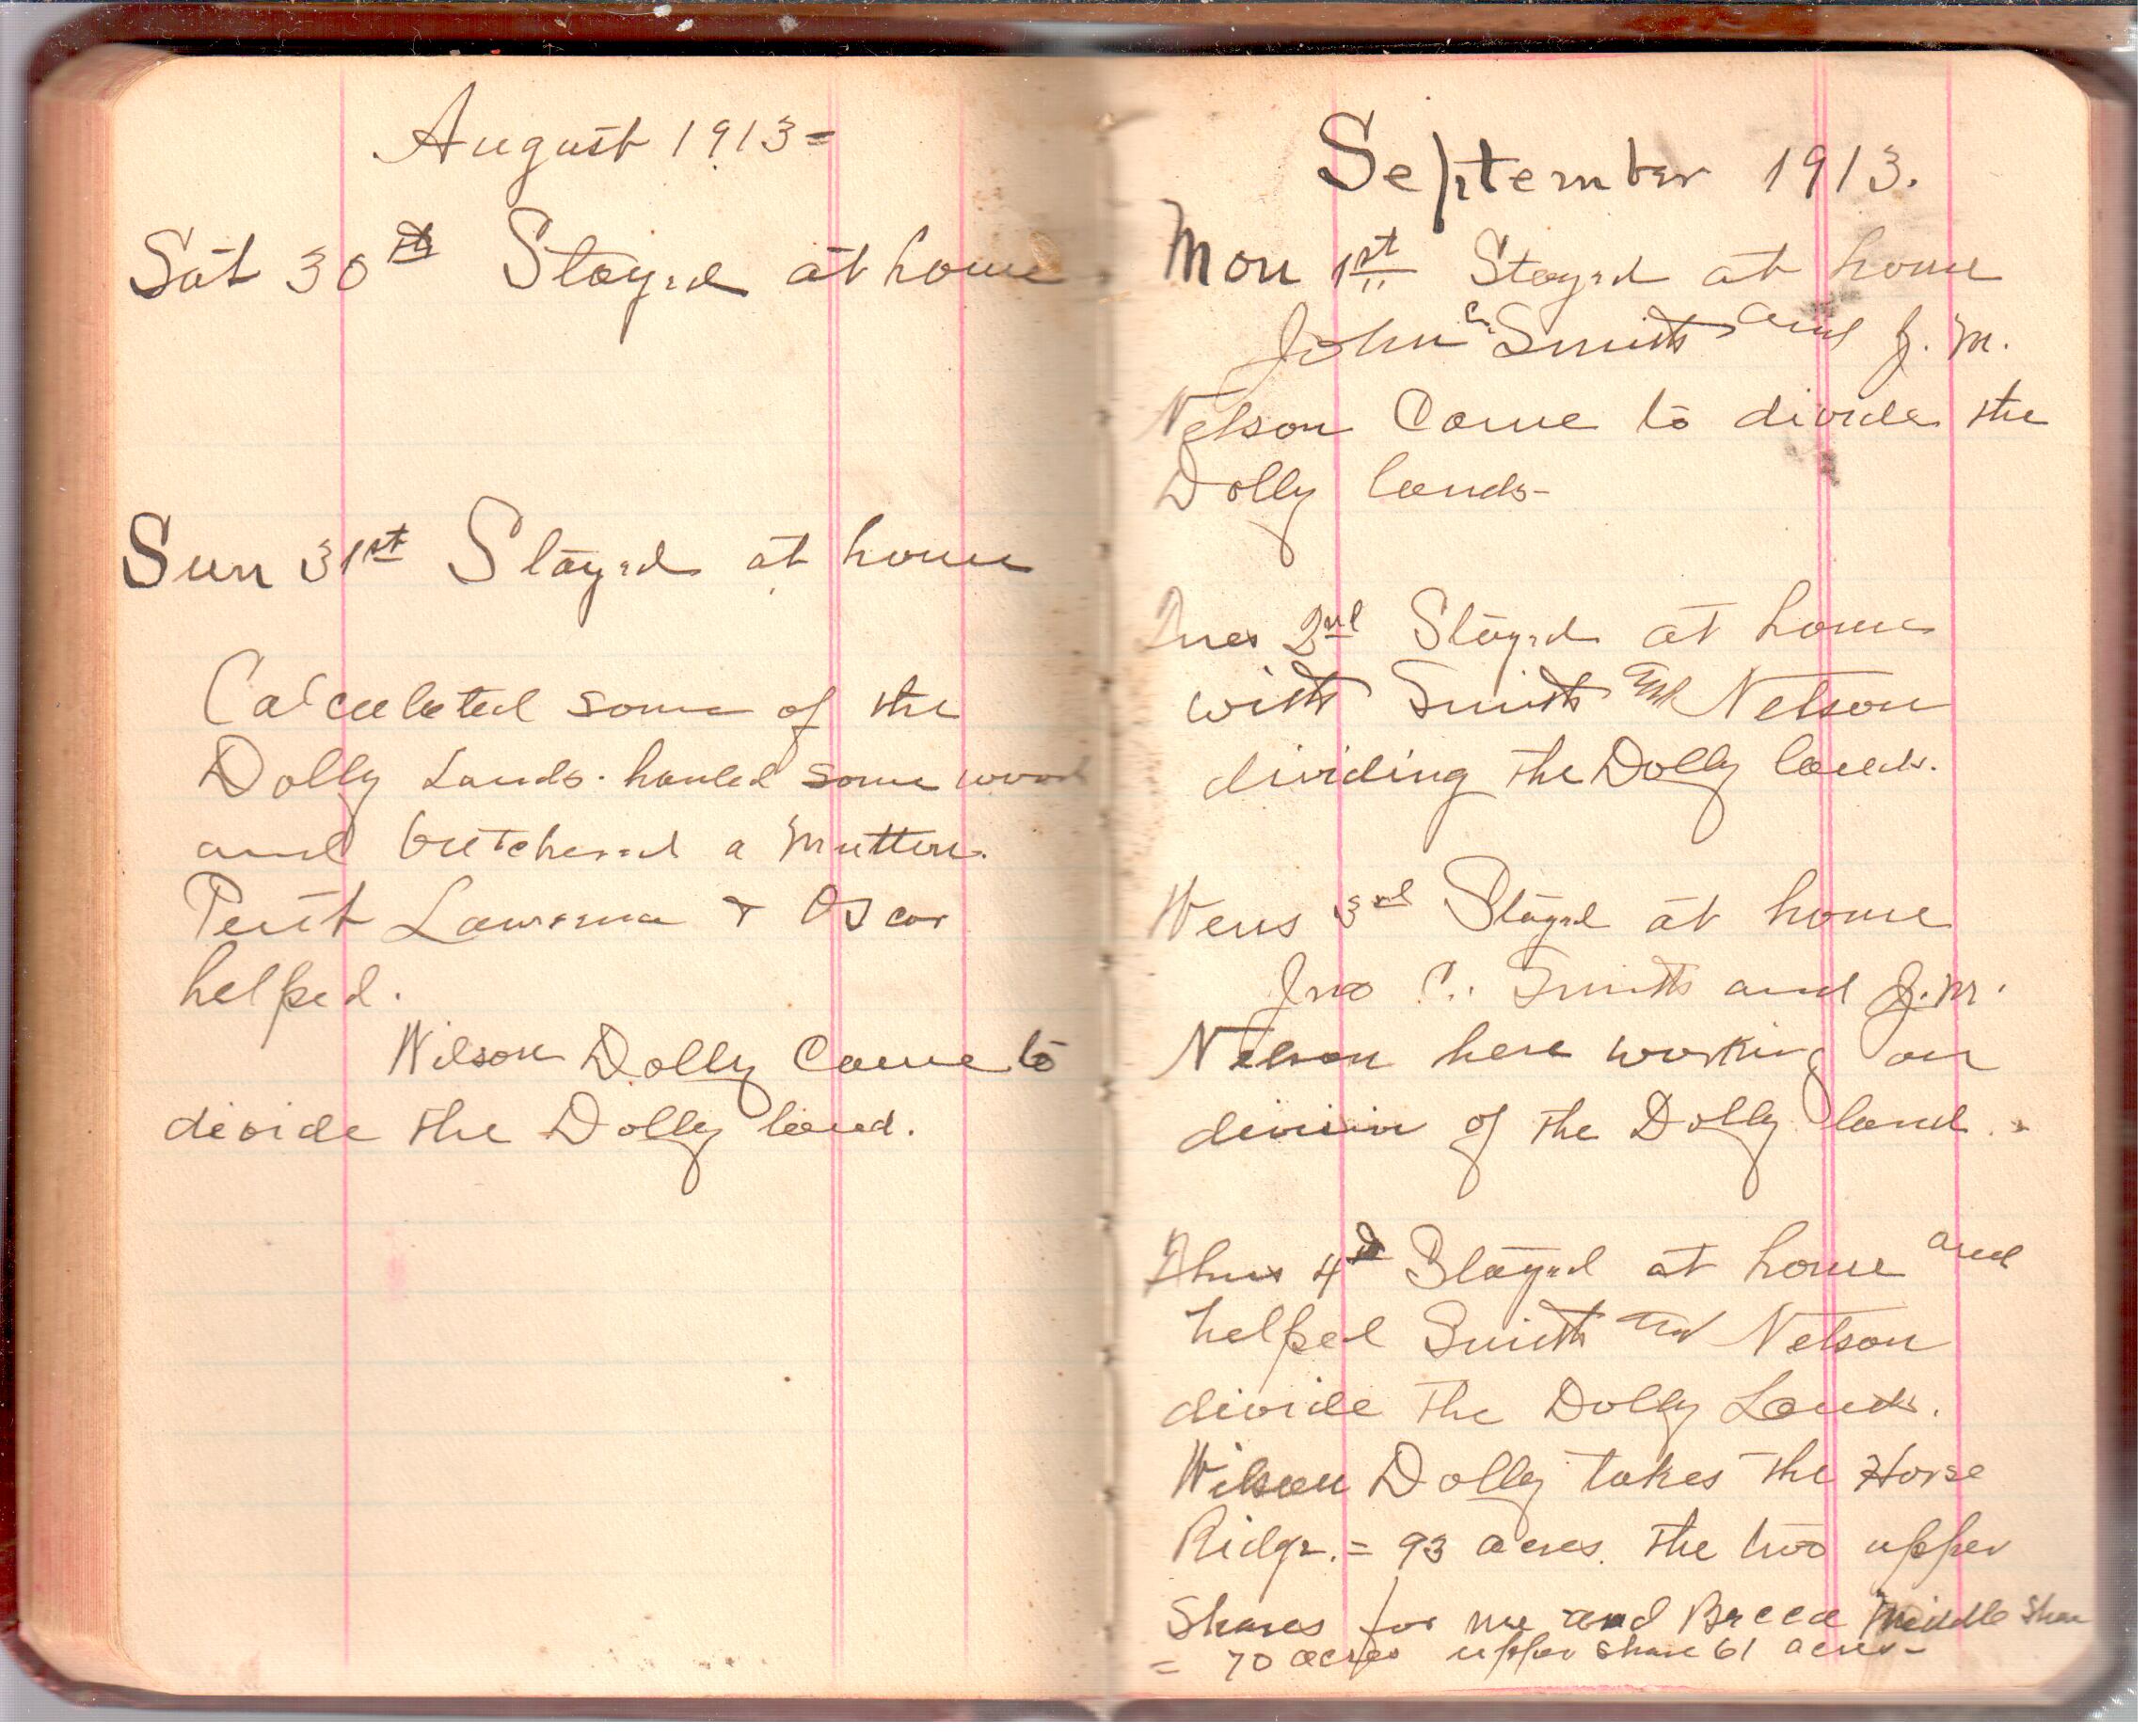 August 1913=
Sat 30th Stayed at home
Sun 31st Stayed at home
Calculated some of the
Dolly Lands. hauled some wood
and butchered a mutton.
Lawrence + Oscar
helped.
Wilson Dolly Came to
divide the Dolly land.
September 1913.
Mon 1st Stayed at home
John C. Smith and J. M.
Nelson Came to divide the
Dolly lands-
Tues 2nd Stayed at home
with Smith and Nelson
dividing the Dolly lands.
Wens 3rd Stayed at home
Jno C. Smith and J. M.
Nelson here working on
division of the Dolly land.
Thus 4th Stayed at home and
helped Smith and Nelson
divide the Dolly Lands.
Wilson Dolly takes the Horse
Ridge. = 93 acres. The two upper
Shares for me and Middle Share
= 70 acres upper share 61 acres-